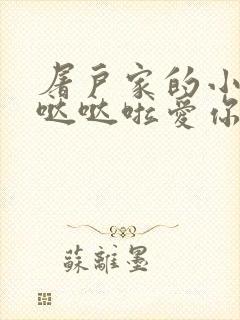 屠戸家的小
哒哒啦爱你
蘇離墨